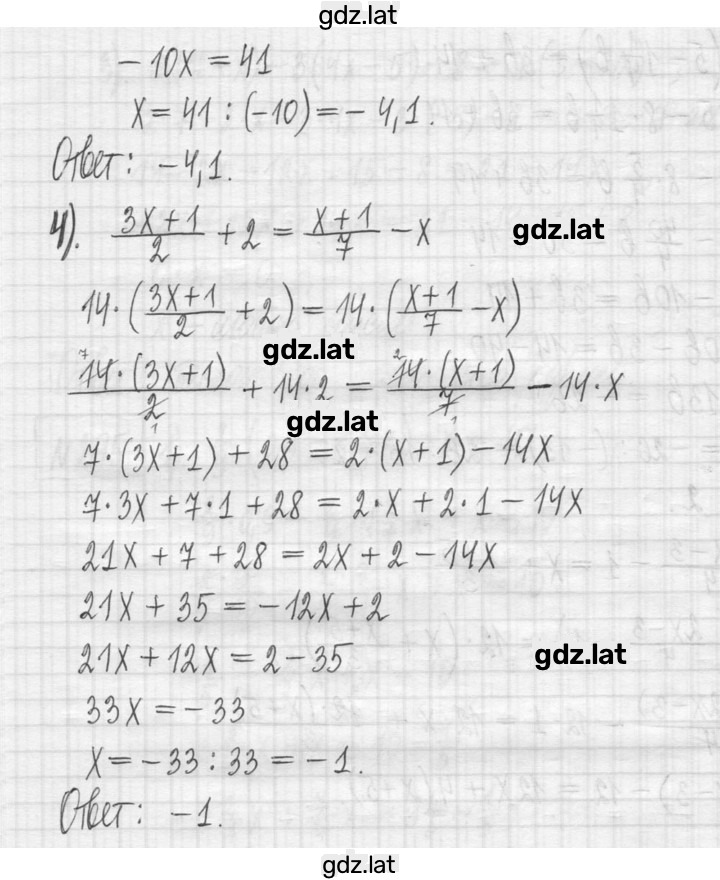 gdz.lat
-10x = 41
x = 41 : (-10) = -4,1.
Ответ: -4,1.
4). (3x+1)/2 + 2 = (x+1)/7 - x gdz.lat
14·((3x+1)/2 + 2) = 14·((x+1)/7 - x)
gdz.lat
⁷14·(3x+1)/2₁ + 14·2 = ²14·(x+1)/7₁ - 14·x
gdz.lat
7·(3x+1) + 28 = 2·(x+1) - 14x
7·3x + 7·1 + 28 = 2·x + 2·1 - 14x
21x + 7 + 28 = 2x + 2 - 14x
21x + 35 = -12x + 2
21x + 12x = 2 - 35 gdz.lat
33x = -33
x = -33 : 33 = -1.
Ответ: -1.
gdz.lat